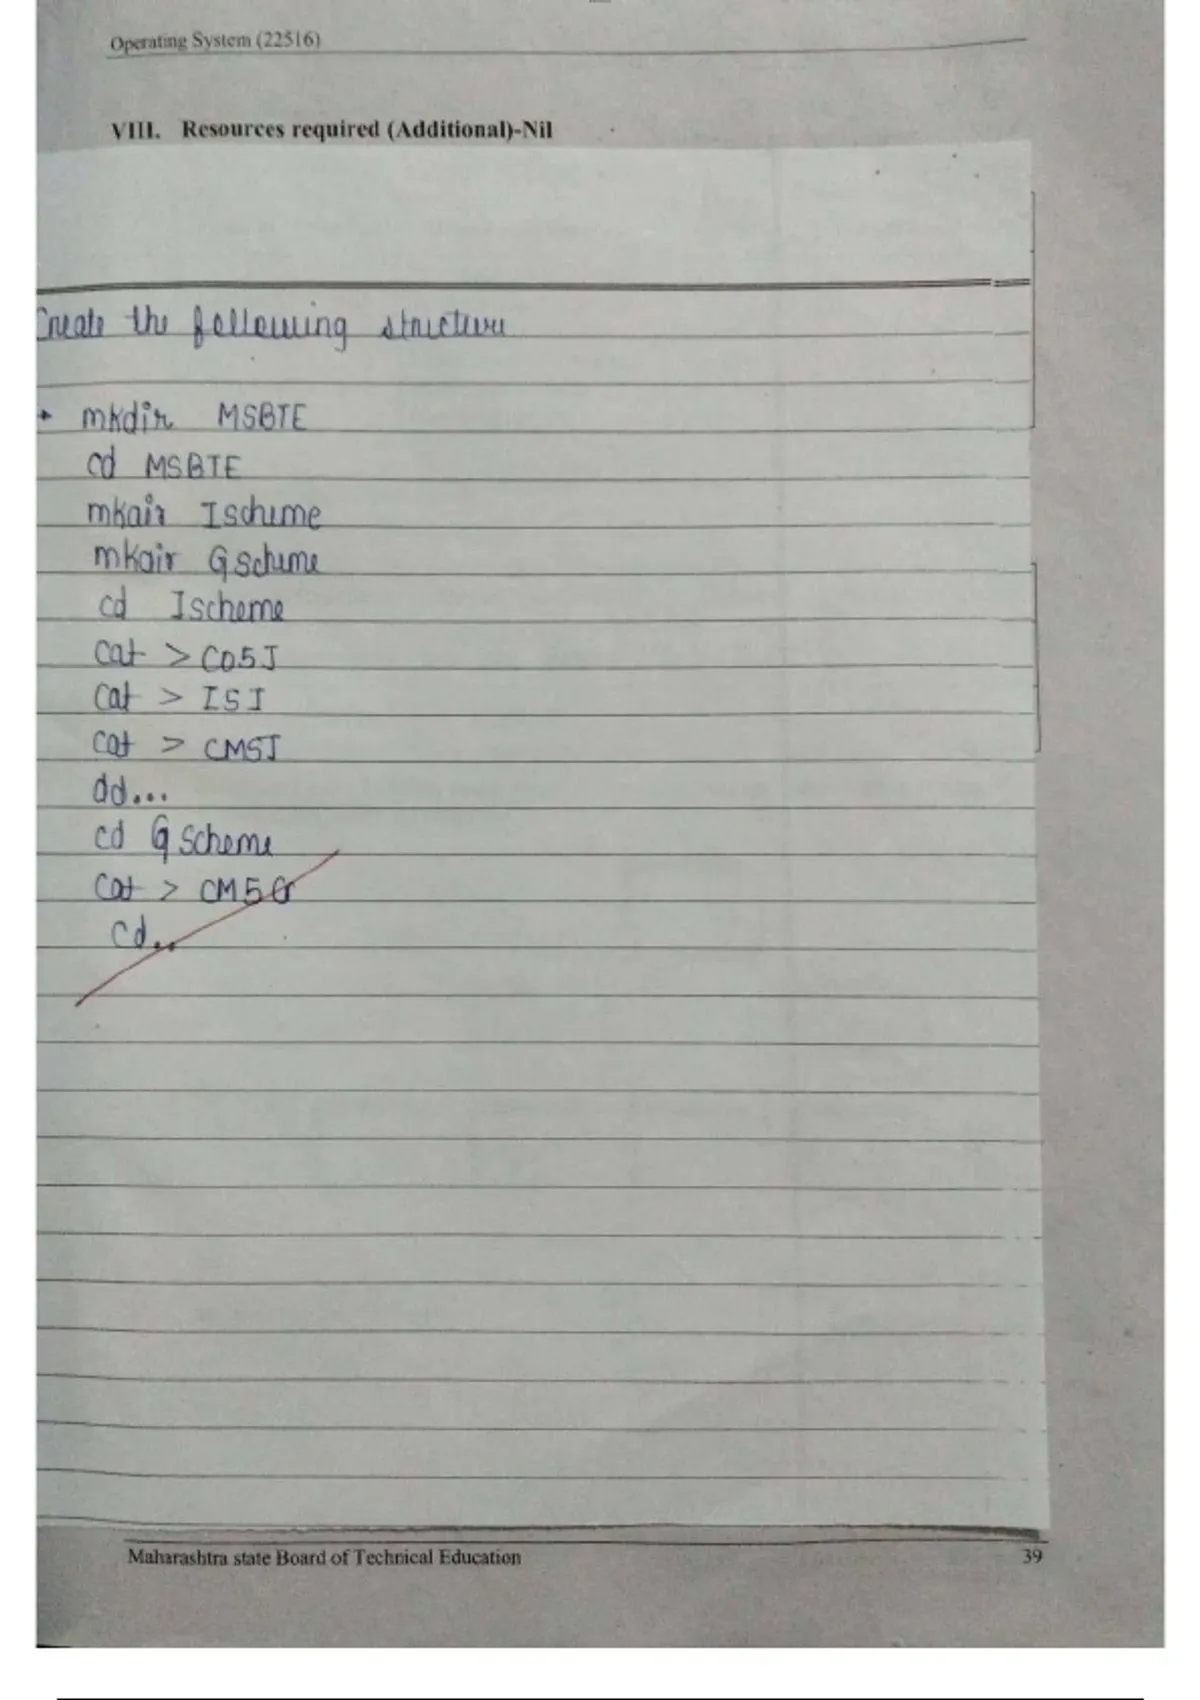 Operating System (22516)
VIII. Resources required (Additional)-Nil
Create the following structure
mkdir MSBTE
cd MSBTE
mkair Ischeme
mkair G scheme
cd Ischeme
cat > CO5I
cat > I5I
cat > CM5I
dd...
cd G Scheme
cat > CM5G
cd..
Maharashtra state Board of Technical Education
39